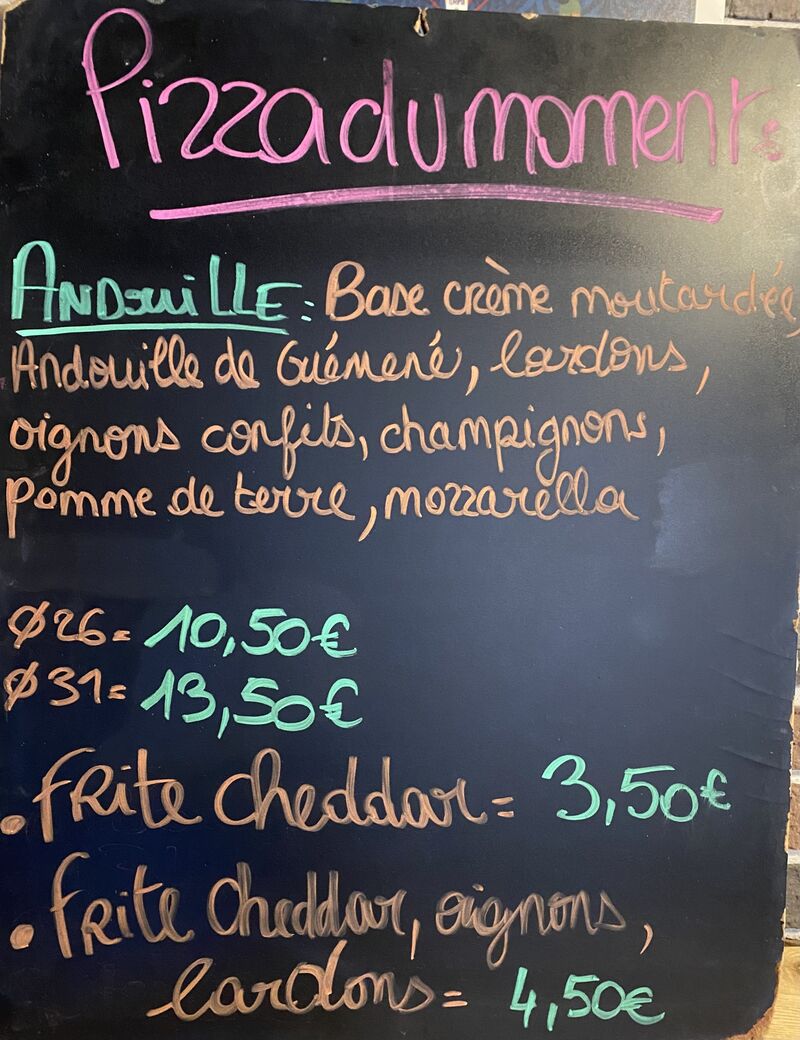 Pizza du moment :
ANDOUILLE : Base crème moutardée,
Andouille de Guémené, lardons,
oignons confits, champignons,
pomme de terre, mozzarella
Ø26= 10,50€
Ø31= 13,50€
. FRite cheddar = 3,50€
. FRite cheddar, oignons,
lardons = 4,50€